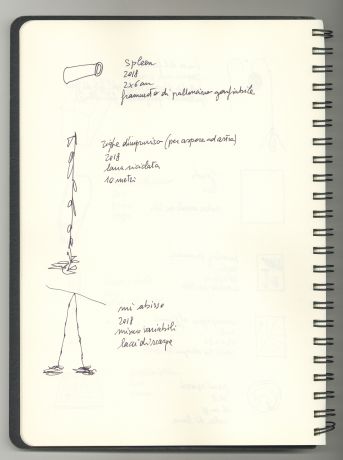 spleen
2018
2x6 cm
frammento di palloncino gonfiabile
righe d'improvviso (per aspera ad astra)
2018
lana riciclata
10 metri
mi abisso
2018
misure variabili
lacci di scarpe